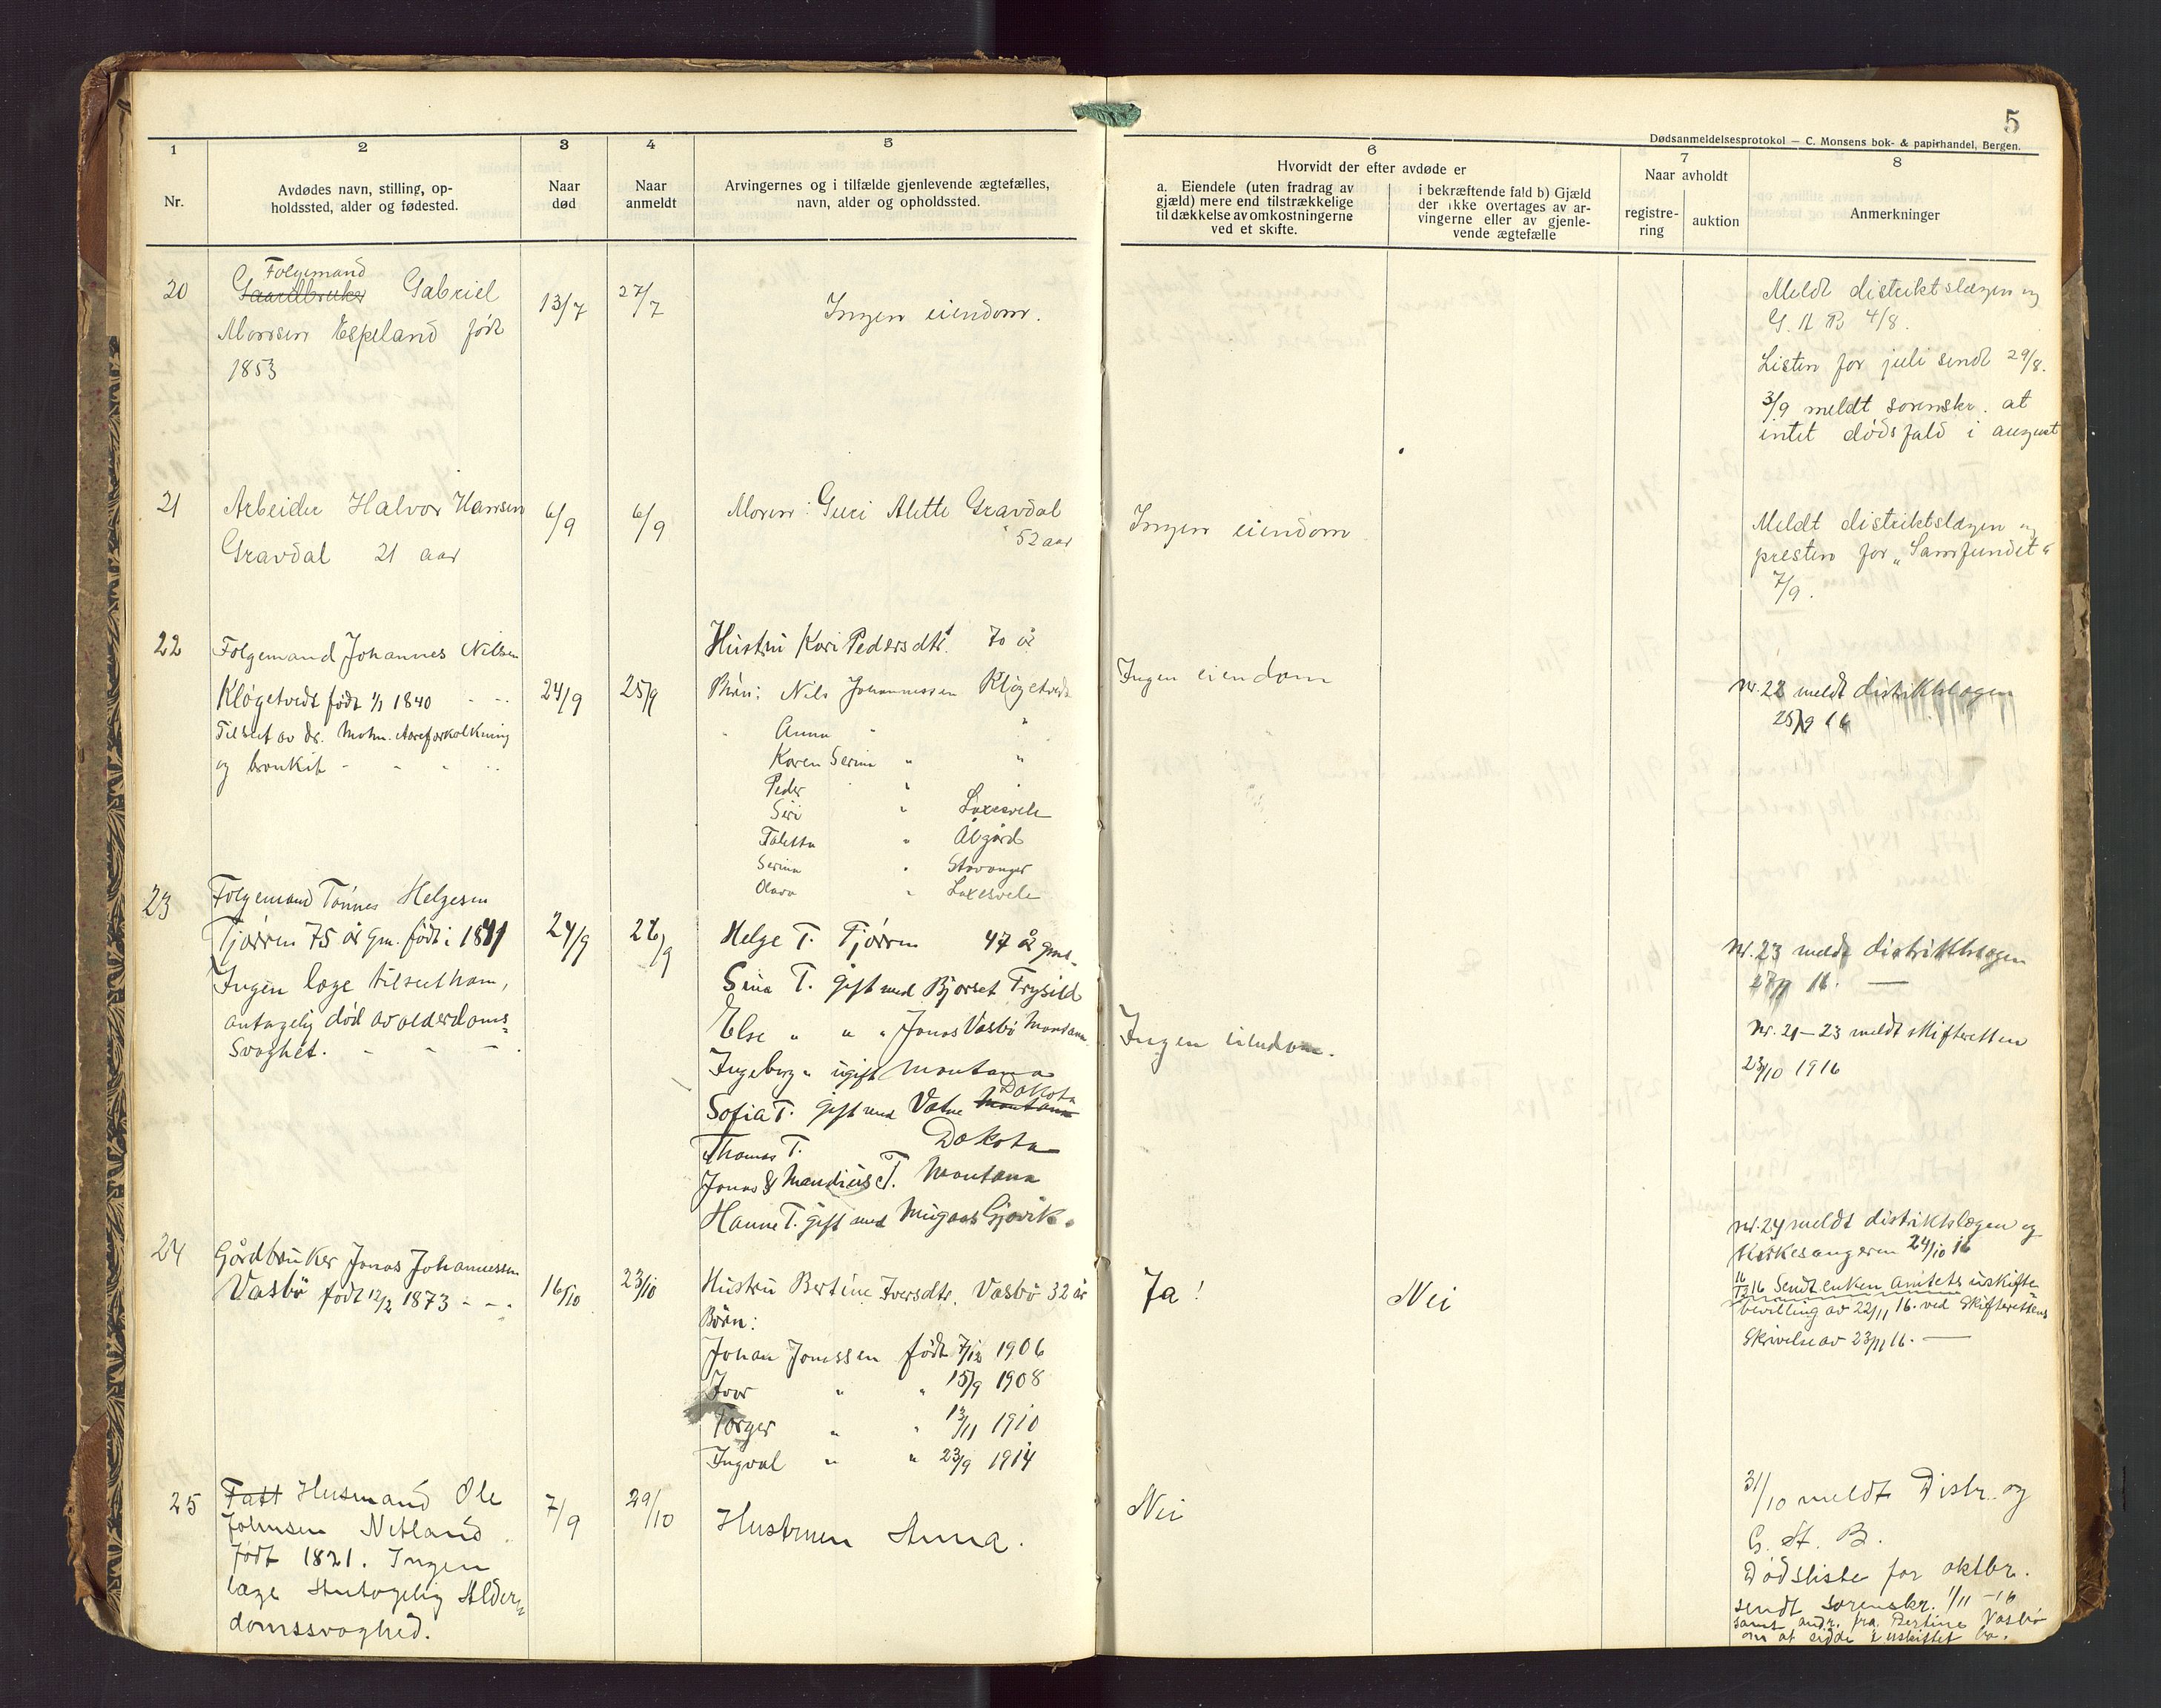 5
Dødsanmeldelsesprotokol — C. Monsens bok- & papirhandel, Bergen.
1
2
3
4
5
6
7
8
Nr.
Avdødes navn, stilling, op-
holdssted, alder og fødested.
Naar
død
Naar
anmeldt
Arvingernes og i tilfælde gjenlevende ægtefælles,
navn, alder og opholdssted.
Hvorvidt der efter avdøde er
a. Eiendele (uten fradrag av
gjæld) mere end tilstrækkelige
til dækkelse av omkostningerne
ved et skifte.
i bekræftende fald b) Gjæld
der ikke overtages av ar-
vingerne eller av gjenle-
vende ægtefælle
Naar avholdt
registre-
ring
auktion
Anmerkninger
20
Folgemand
Gaardbruker Gabriel
Monsen Espeland født
1853
13/7
27/7
Ingen eiendom.
Meldt distriktslægen og
G. A B 4/8.
Listen for juli sendt 29/8.
3/9 meldt sorenskr. at
intet dødsfald i august
21
Arbeider Halvor Hansen
Gravdal 21 aar
6/9
6/9
Moren: Guri Alette Gravdal
52 aar
Ingen eiendom
Meldt distriktslægen og
presten for „Samfundet“
7/9.
22
Folgemand Johannes Nilsen
Kløgetvedt født 1/1 1840
Tilseet av dr. Mohn. Aareforkalkning
og bronkit - - - -
24/9
25/9
Hustru Kari Pedersdtr. 70 år
Børn: Nils Johannessen Kløgetvedt
Anna " "
Karen Serina " "
Peder "
Siri " Laxesvele
Taletta " Ålgård
Serina " Stavanger
Olava " Laxesvele
Ingen eiendom
Nr. 22 meldt distriktslægen
25/9 16
23
Folgemand Tønnes Helgesen
Tjørrn 75 år gm. født i 1841
Ingen læge tilseet ham,
antagelig død av alderdoms-
svaghet. - - -
24/9
26/9
Helge T. Tjørrn 47 år gml.
Sina T. gift med Bjorset Trysild
Else " " " Jonas Vasbø Montana
Ingeborg " ugift Montana
Sofia T. gift med Vatne Montana Dakota
Thomas T. Dakota
Jonas & Mandius T. Montana
Hanne T. gift med Mugaas Gjøvik.
Ingen eiendom.
Nr. 23 meldt distriktslægen
27/9 16. —
Nr. 21—23 meldt skifteretten
23/10 1916
24
Gårdbruker Jonas Johannessen
Vasbø født 12/2 1873 - - -
16/10
23/10
Hustru Bertine Iversdtr. Vasbø 32 år
Børn:
Johan Jonassen født 7/12 1906
Ivar " " 15/9 1908
Torger " " 13/11 1910
Ingval " " 23/9 1914
Ja!
Nei
Nr. 24 meldt distriktslægen og
kirkesangeren 24/10 16
11/12 16 Sendt enken Amtets uskifte-
bevilling av 22/11 16. ved Skifterettens
Skrivelse av 23/11 16. —
25
Fatt Husmand Ole
Johnsen Netland
født 1821. Ingen
læge Antagelig Alder-
domssvaghed.
7/9
29/10
Hustruen Anna.
Nei
31/10 meldt Distr. og
G. St. B.
Dødsliste for oktbr.
sendt sorenskr. 1/11 -16
samt andr. fra Bertine Vasbø
om at sidde i uskiftet bo.